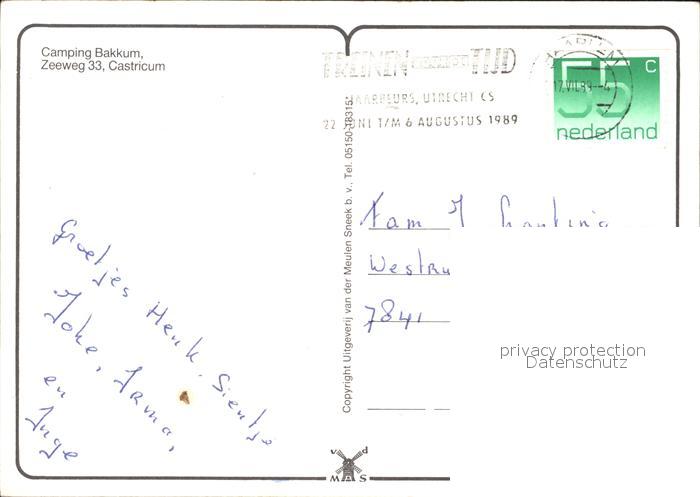 Camping Bakkum,
Zeeweg 33, Castricum
TREINEN TIJD
JAARBEURS, UTRECHT CS
22 JUNI T/M 6 AUGUSTUS 1989
HAARLEM
17.VII.89.-4
55 c
nederland
Copyright Uitgeverij van der Meulen Sneek b.v., Tel. 05150-18315
Fam J
7841
Groetjes Henk, Sientje
Joke, Irma,
en
Inge
privacy protection
Datenschutz
v d
M S